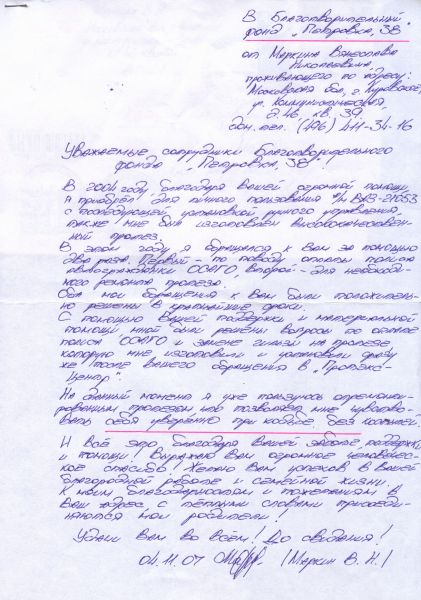 В Благотворительный
фонд „Петровка, 38"
от Маркина Вячеслава
Николаевича,
проживающего по адресу:
Московская обл., г.
ул. Коммунистическая,
д. 46, кв. 39
дом. тел. (496) 411-34-16
Уважаемые сотрудники Благотворительного
фонда „Петровка, 38".
В 2004 году, благодаря Вашей огромной помощи,
я приобрёл для личного пользования а/м ВАЗ-21053
с последующей установкой ручного управления,
также мне был изготовлен высококачествен-
ный протез.
В этом году я обращался к Вам за помощью
два раза. Первый - по поводу оплаты полиса
автогражданки ОСАГО, второй - для необходи-
мого ремонта протеза.
Оба мои обращения к Вам были положитель-
но решены в кратчайшие сроки.
С помощью Вашей поддержки и материальной
помощи мной были решены вопросы по оплате
полиса ОСАГО и замене гильзы на протезе,
которую мне изготовили и установили сразу
же после Вашего обращения в „Протэкс-
Центр".
На данный момент я уже пользуюсь отремонти-
рованным протезом, что позволяет мне чувство-
вать себя уверенно при ходьбе без костылей.
И всё это благодаря Вашей заботе, поддержке
и помощи! Выражаю Вам огромное человечес-
кое спасибо! Желаю Вам успехов в Вашей
благородной работе и семейной жизни.
К моим благодарностям и пожеланиям в
Ваш адрес с тёплыми словами присоеди-
няются мои родители!
Удачи Вам во всём! До свидания!
04.11.07 (Маркин В. Н.)